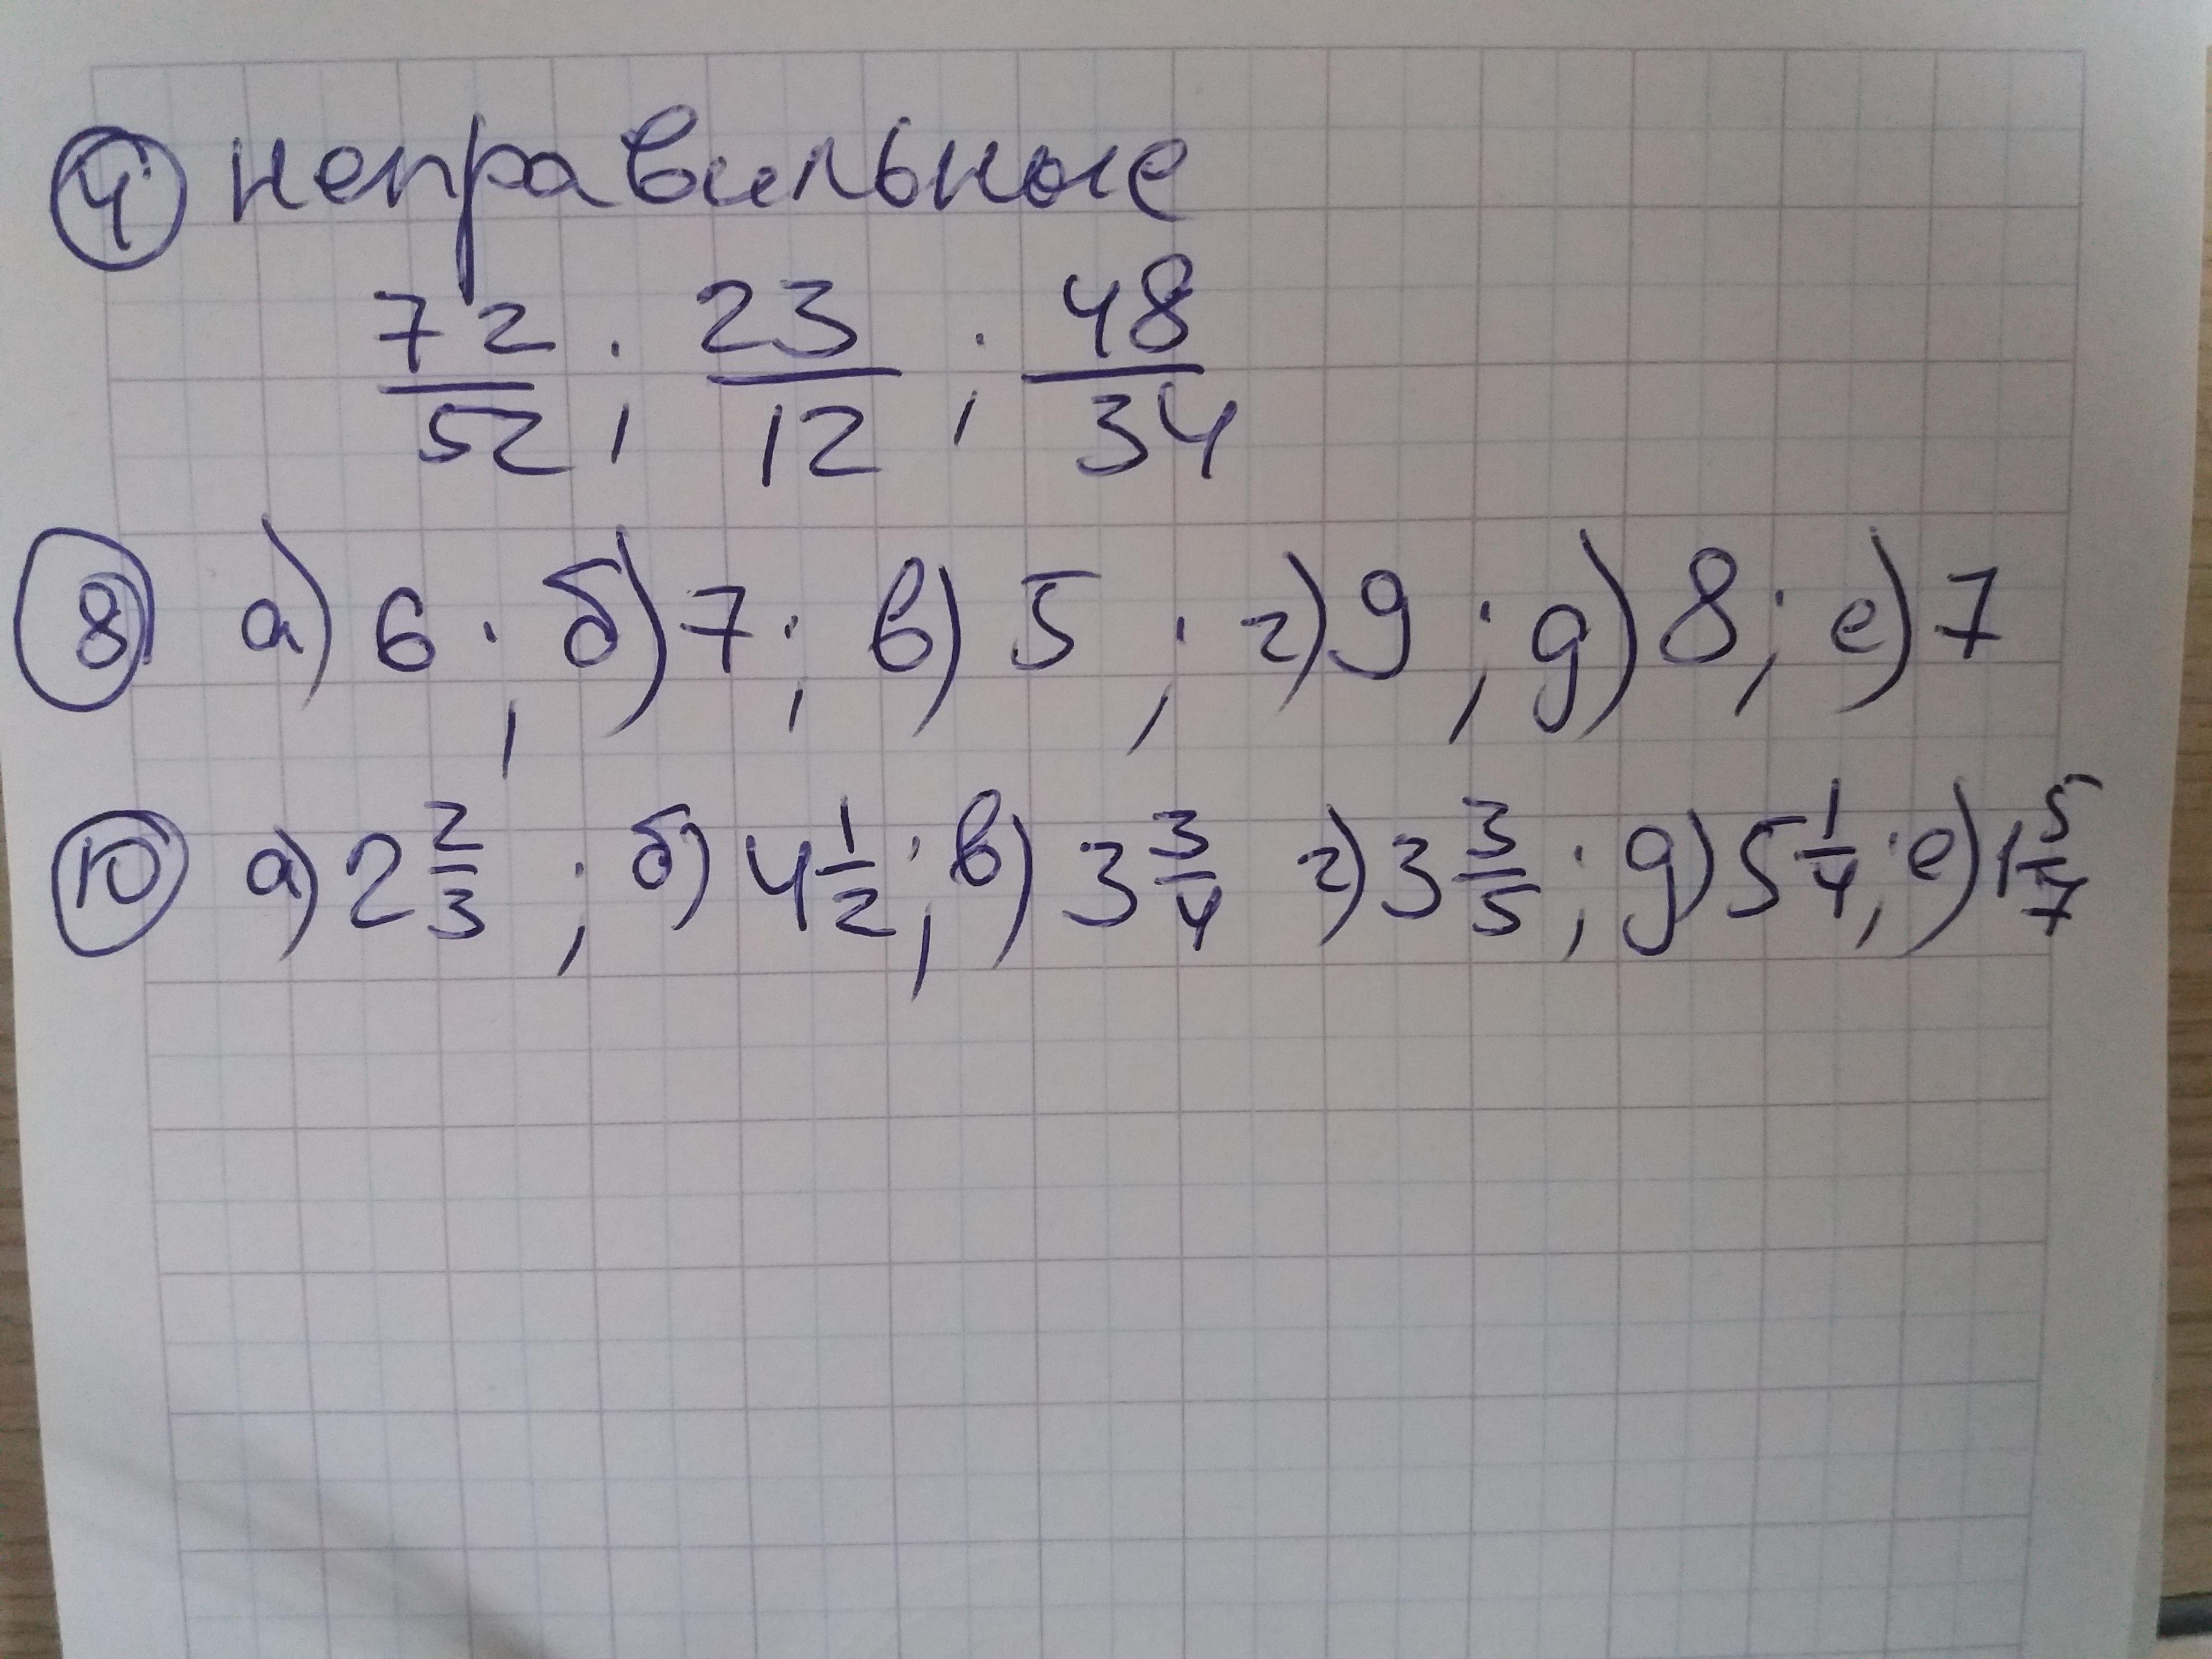 ④ неправильные
72/52 ; 23/12 ; 48/34
⑧ а) 6 ; б) 7 ; в) 5 ; г) 9 ; д) 8 ; е) 7
⑩ а) 2 2/3 ; б) 4 1/2 ; в) 3 3/4 г) 3 3/5 ; д) 5 1/4 ; е) 1 5/7